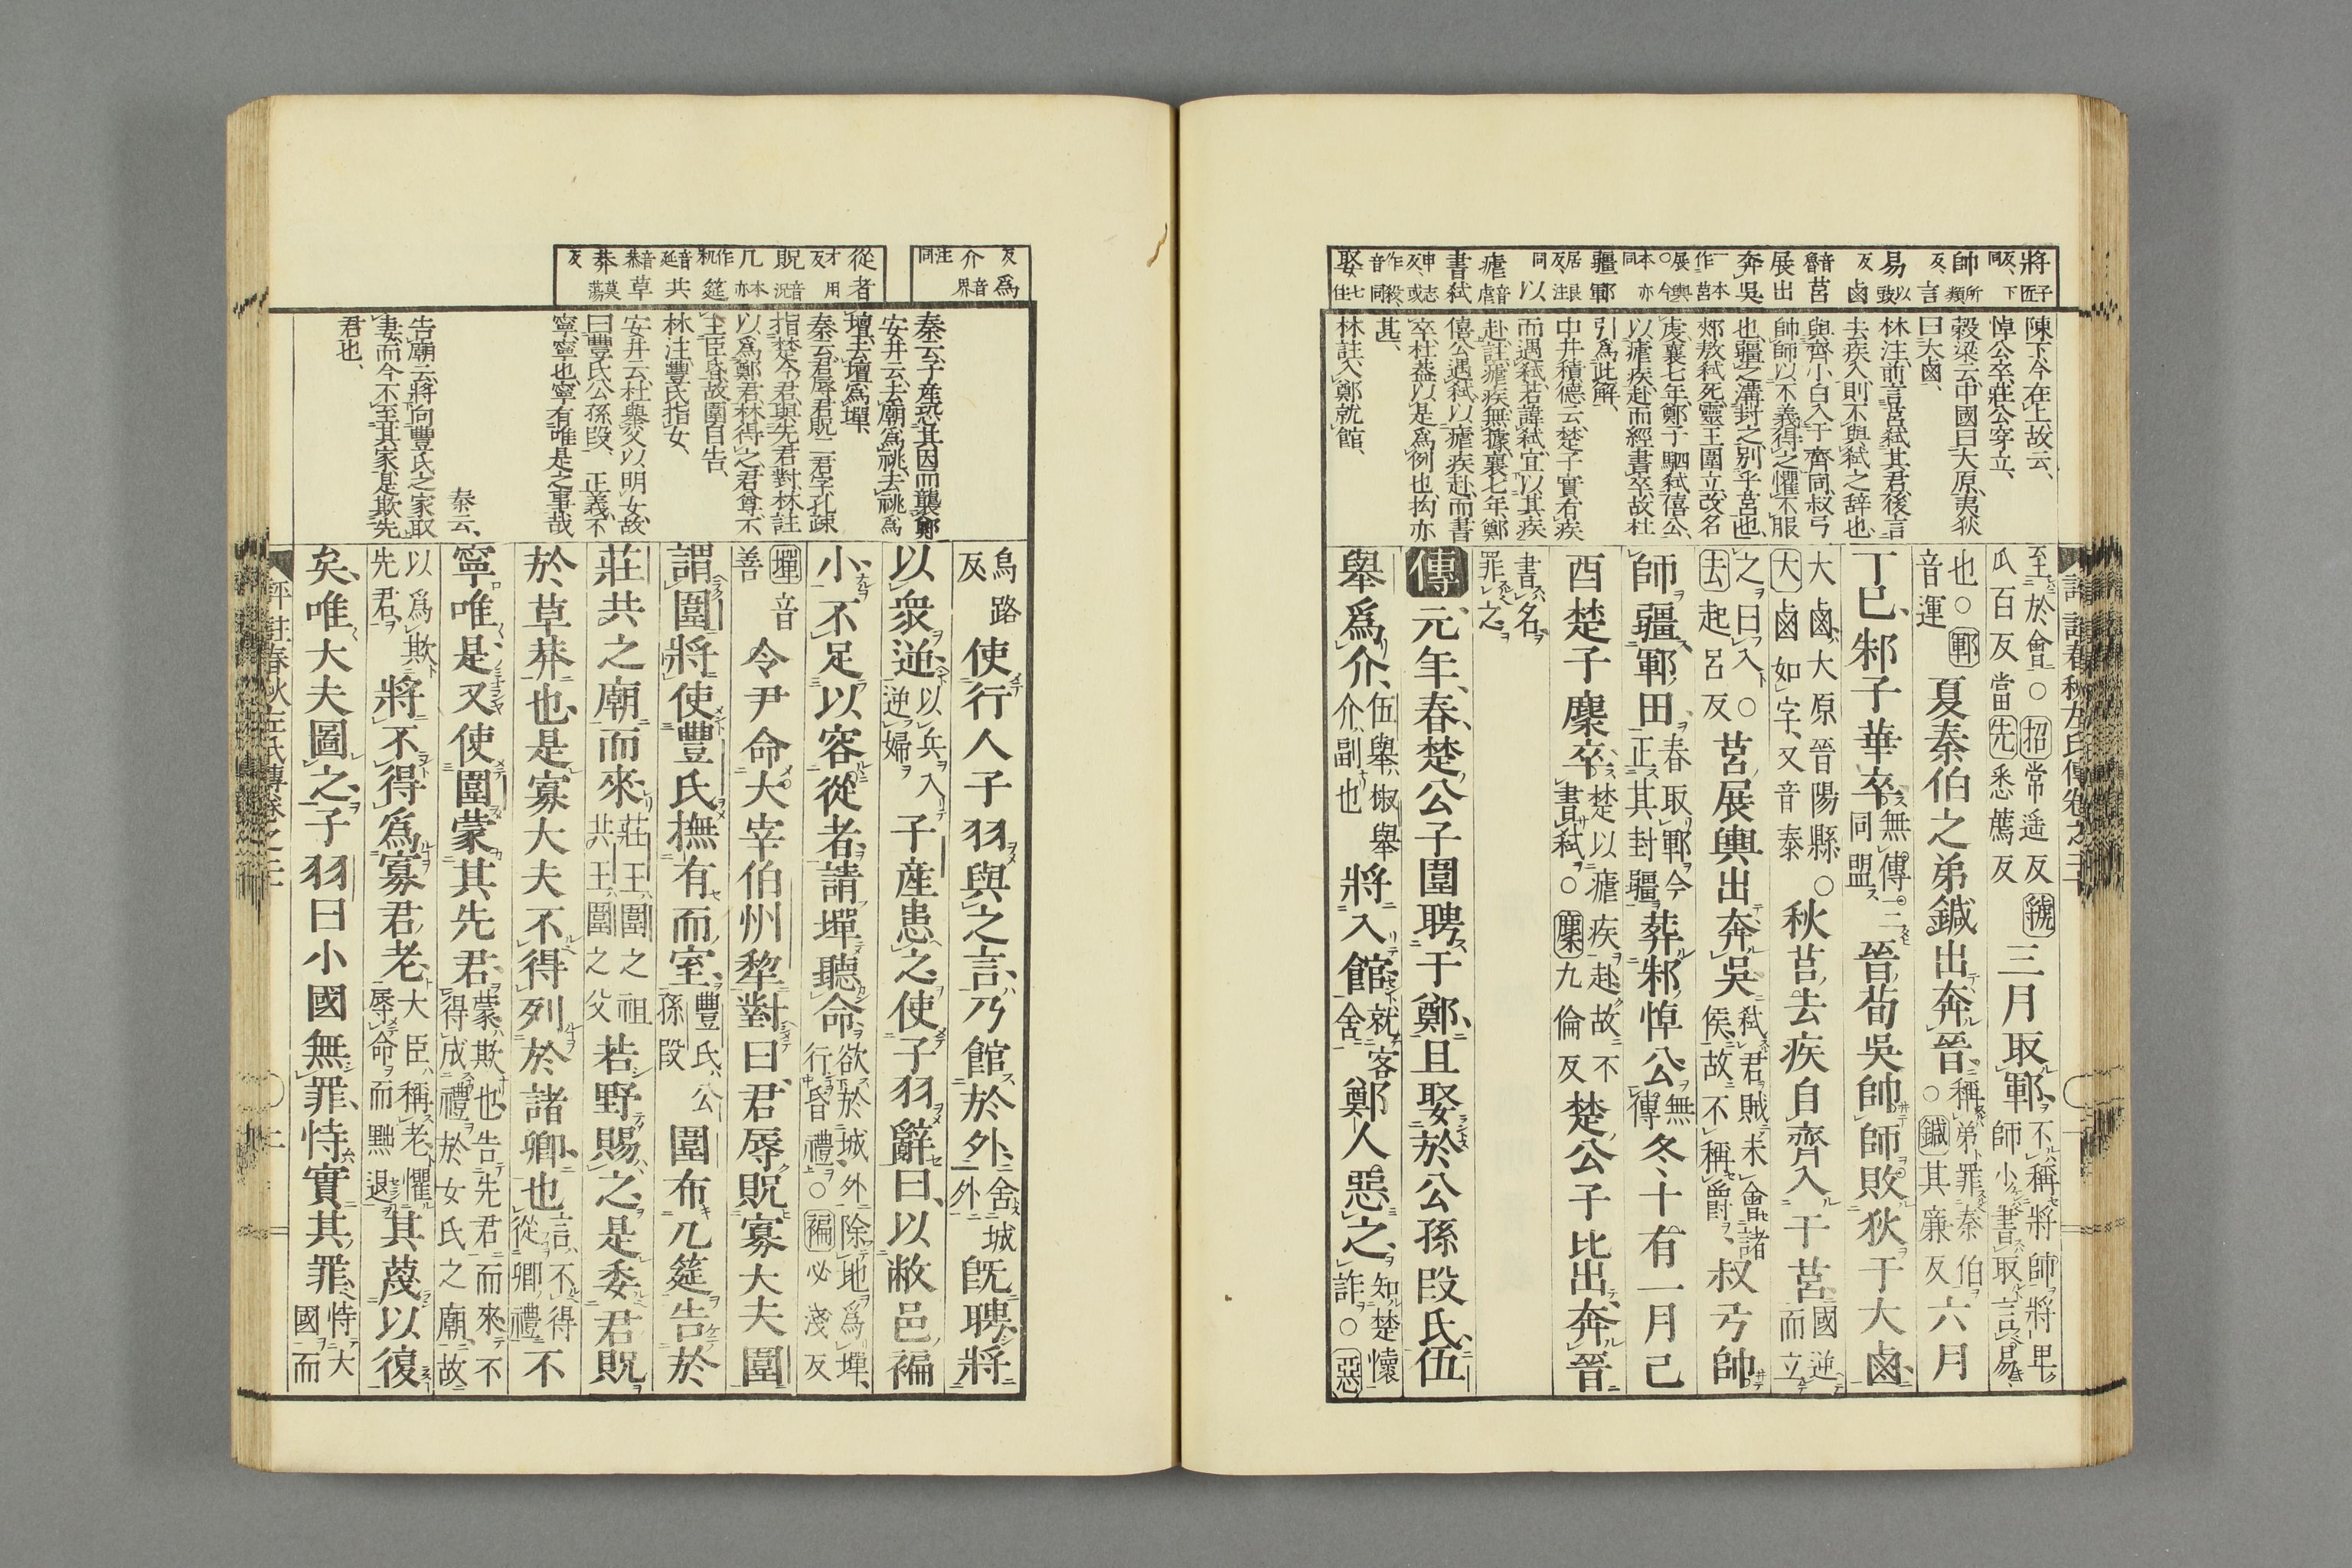 將子匠反、下同
帥所類反、言
易以豉反鹵
音魯莒
展出
奔吳
一本作莒展輿○今本亦同
疆鄆
居良反、注同以、
瘧音虐
書弒
申志反、或作殺、音同
娶七住
陳下今在上故云、
悼公卒、莊公穿立、
穀梁云、中國曰大原、夷狄
曰大鹵、
林注、前言莒弒其君、後言
去疾入則不與弒之辞也、
與齊小白入于齊同、叔弓
帥師以不義得之懼不服
也、疆之溝封之別乎莒也、
郟敖弒死、靈王圍立、改名
虔、襄七年、鄭子駟弒僖公、
以瘧疾赴而經書卒、故杜
引爲此解、
中井積德云、楚子實有疾
而遇弒、若諱弒、宜以其疾
赴、註瘧疾無據、襄七年、鄭
僖公遇弒、以瘧疾赴、而書
卒、杜葢以是爲例也、拘亦
甚、
林註、入鄭就館、
至於會○招常遙反虢瓜百反當先悉薦反三月取鄆、不稱將帥將卑師小書取言易
也○鄆音運夏秦伯之弟鍼出奔晉、稱弟罪秦伯○鍼其廉反六月
丁巳、邾子華卒、無傳三同盟晉荀吳帥師敗狄于大鹵、
大鹵大原晉陽縣○大鹵如字又音泰秋莒去疾自齊入于莒、國逆而立
之曰入○去起呂反莒展輿出奔吳、弒君賊未會諸侯故不稱爵、叔弓帥
師疆鄆田、春取鄆今正其封疆葬邾悼公、無傳冬、十有一月己
酉楚子麇卒、楚以瘧疾赴故不書弒○麇九倫反楚公子比出奔晉
書名罪之
傳元年、春、楚公子圍聘于鄭、且娶於公孫段氏、伍
舉爲介、伍舉椒舉介、副也將入館、就客舍鄭人惡之、知楚懷詐○惡
反爲
介音界
注同
從者
才用反
貺音況
几本亦作机筵
音延共
音恭草
莽莫蕩反
秦云、子産恐其因而襲鄭
安井云、去廟爲祧、去祧爲
壇、去壇爲墠、
秦云、君辱君貺二君字、孔疎
指楚今君、與先君對、林註
以爲鄭君、林得之、君尊、不
主臣昏、故圍自告、
林注、豐氏指女、
安井云、杜舉父以明女、故
曰豐氏公孫段、正義、不
寧、寧也、寧有唯是之事哉
秦云、
告廟云、將向豐氏之家取
妻、而今不至其家、是欺先
君也、
烏路反使行人子羽與之言、乃館於外、舍城外既聘、將
以衆逆、以兵入逆婦子産患之、使子羽辭曰、以敝邑褊
小、不足以容從者、請墠聽命、欲於城外除地爲墠、行昏禮○褊必淺反
墠音善令尹命大宰伯州犂對曰、君辱貺寡大夫圍
謂圍將使豐氏撫有而室、豐氏公孫段圍布几筵告於
莊共之廟而來、莊王圍之祖共王圍之父若野賜之、是委君貺
於草莽也、是寡大夫不得列於諸卿也、言不得從卿禮不
寧唯是、又使圍蒙其先君、蒙欺也告先君而來不得成禮於女氏之廟故
以爲欺先君將不得爲寡君老、大臣稱老懼辱命而黜退其蔑以復
矣、唯大夫圖之、子羽曰小國無罪、恃實其罪、恃大國而